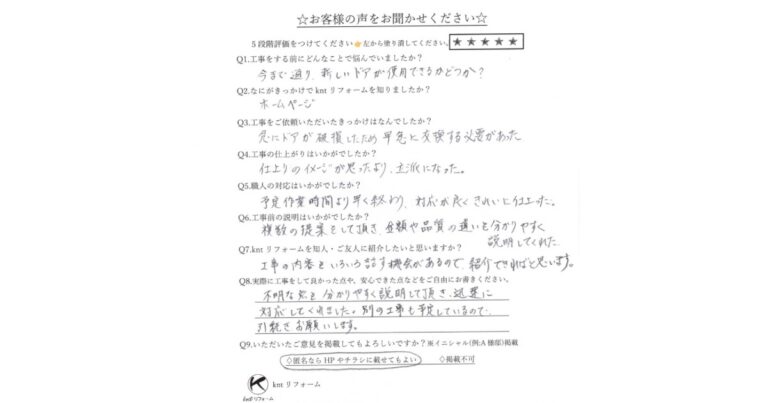 ☆お客様の声をお聞かせください☆
5段階評価をつけてください👉左から塗り潰してください。 ★★★★★
Q1.工事をする前にどんなことで悩んでいましたか?
今まで通り、新しいドアが使用できるかどうか?
Q2.なにがきっかけでkntリフォームを知りましたか?
ホームページ
Q3.工事をご依頼いただいたきっかけはなんでしたか?
急にドアが破損したため早急に交換する必要があった
Q4.工事の仕上がりはいかがでしたか?
仕上りのイメージが思ったより、立派になった。
Q5.職人の対応はいかがでしたか?
予定作業時間より早く終わり、対応が良くきれいに仕上った。
Q6.工事前の説明はいかがでしたか?
複数の提案をして頂き、金額や品質の違いを分かりやすく
説明してくれた
Q7.kntリフォームを知人・ご友人に紹介したいと思いますか?
工事の内容をいろいろ話す機会があるので、紹介できればと思います。
Q8.実際に工事をして良かった点や、安心できた点などをご自由にお書きください。
不明な点を分かりやすく説明して頂き、迅速に
対応してくれました。別の工事も予定しているので、
引続きお願いします。
Q9.いただいたご意見を掲載してもよろしいですか?※イニシャル(例:A様邸)掲載
◇匿名ならHPやチラシに載せてもよい ◇掲載不可
K kntリフォーム
kntリフォーム